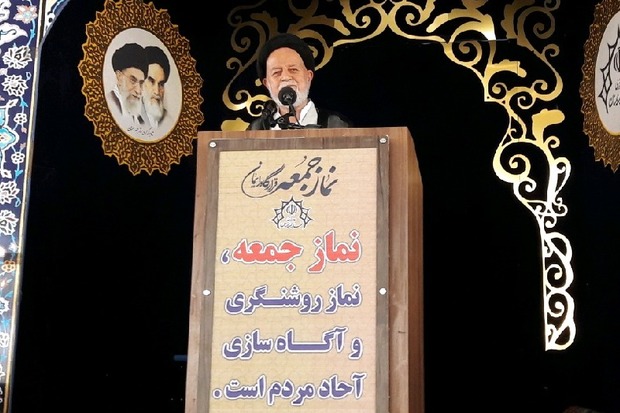 نماز جمعه قرارگاه ایمان
نماز جمعه،
نماز روشنگری
و آگاه سازی
آحاد مردم است.